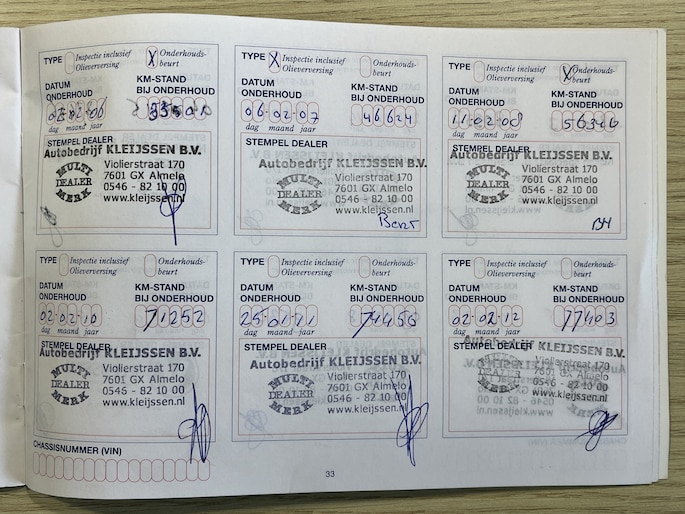 TYPE X Inspectie inclusief Olieverversing X Onderhouds-beurt
DATUM ONDERHOUD KM-STAND BIJ ONDERHOUD
02-02-06
dag maand jaar
STEMPEL DEALER
Autobedrijf KLEIJSSEN B.V.
MULTI DEALER MERK
Violierstraat 170
7601 GX Almelo
0546 - 82 10 00
www.kleijssen.nl
TYPE X Inspectie inclusief Olieverversing Onderhouds-beurt
DATUM ONDERHOUD KM-STAND BIJ ONDERHOUD
06-02-07 46624
dag maand jaar
STEMPEL DEALER
Autobedrijf KLEIJSSEN B.V.
MULTI DEALER MERK
Violierstraat 170
7601 GX Almelo
0546 - 82 10 00
www.kleijssen.nl
TYPE Inspectie inclusief Olieverversing X Onderhouds-beurt
DATUM ONDERHOUD KM-STAND BIJ ONDERHOUD
11-02-08 56346
dag maand jaar
STEMPEL DEALER
Autobedrijf KLEIJSSEN B.V.
MULTI DEALER MERK
Violierstraat 170
7601 GX Almelo
0546 - 82 10 00
www.kleijssen.nl
TYPE Inspectie inclusief Olieverversing Onderhouds-beurt
DATUM ONDERHOUD KM-STAND BIJ ONDERHOUD
02-02-10 71252
dag maand jaar
STEMPEL DEALER
Autobedrijf KLEIJSSEN B.V.
MULTI DEALER MERK
Violierstraat 170
7601 GX Almelo
0546 - 82 10 00
www.kleijssen.nl
TYPE Inspectie inclusief Olieverversing Onderhouds-beurt
DATUM ONDERHOUD KM-STAND BIJ ONDERHOUD
25-01-11 74456
dag maand jaar
STEMPEL DEALER
Autobedrijf KLEIJSSEN B.V.
MULTI DEALER MERK
Violierstraat 170
7601 GX Almelo
0546 - 82 10 00
www.kleijssen.nl
TYPE Inspectie inclusief Olieverversing Onderhouds-beurt
DATUM ONDERHOUD KM-STAND BIJ ONDERHOUD
02-02-12 77403
dag maand jaar
STEMPEL DEALER
Autobedrijf KLEIJSSEN B.V.
MULTI DEALER MERK
Violierstraat 170
7601 GX Almelo
0546 - 82 10 00
www.kleijssen.nl
CHASSISNUMMER (VIN)
33